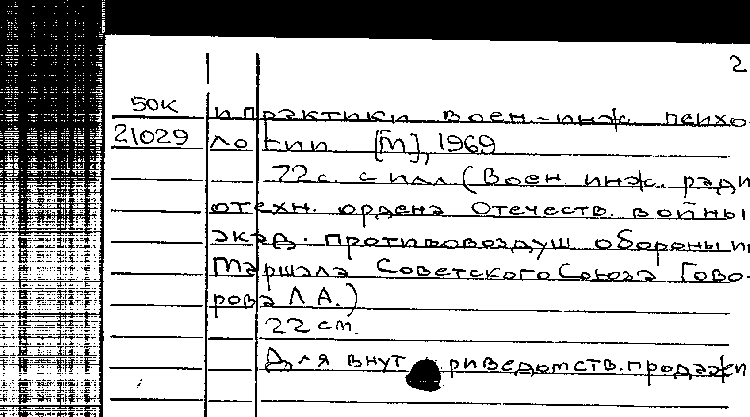 2
50К и практики воен.-инж. психо-
21029 логии. [М], 1969
72 с. с илл. (Воен. инж. ради
отехн. ордена Отечеств. войны
акад. противовоздуш обороны и
Маршала Советского Союза Гово-
рова Л А.)
22 см.
Для внут риведомств. продажи